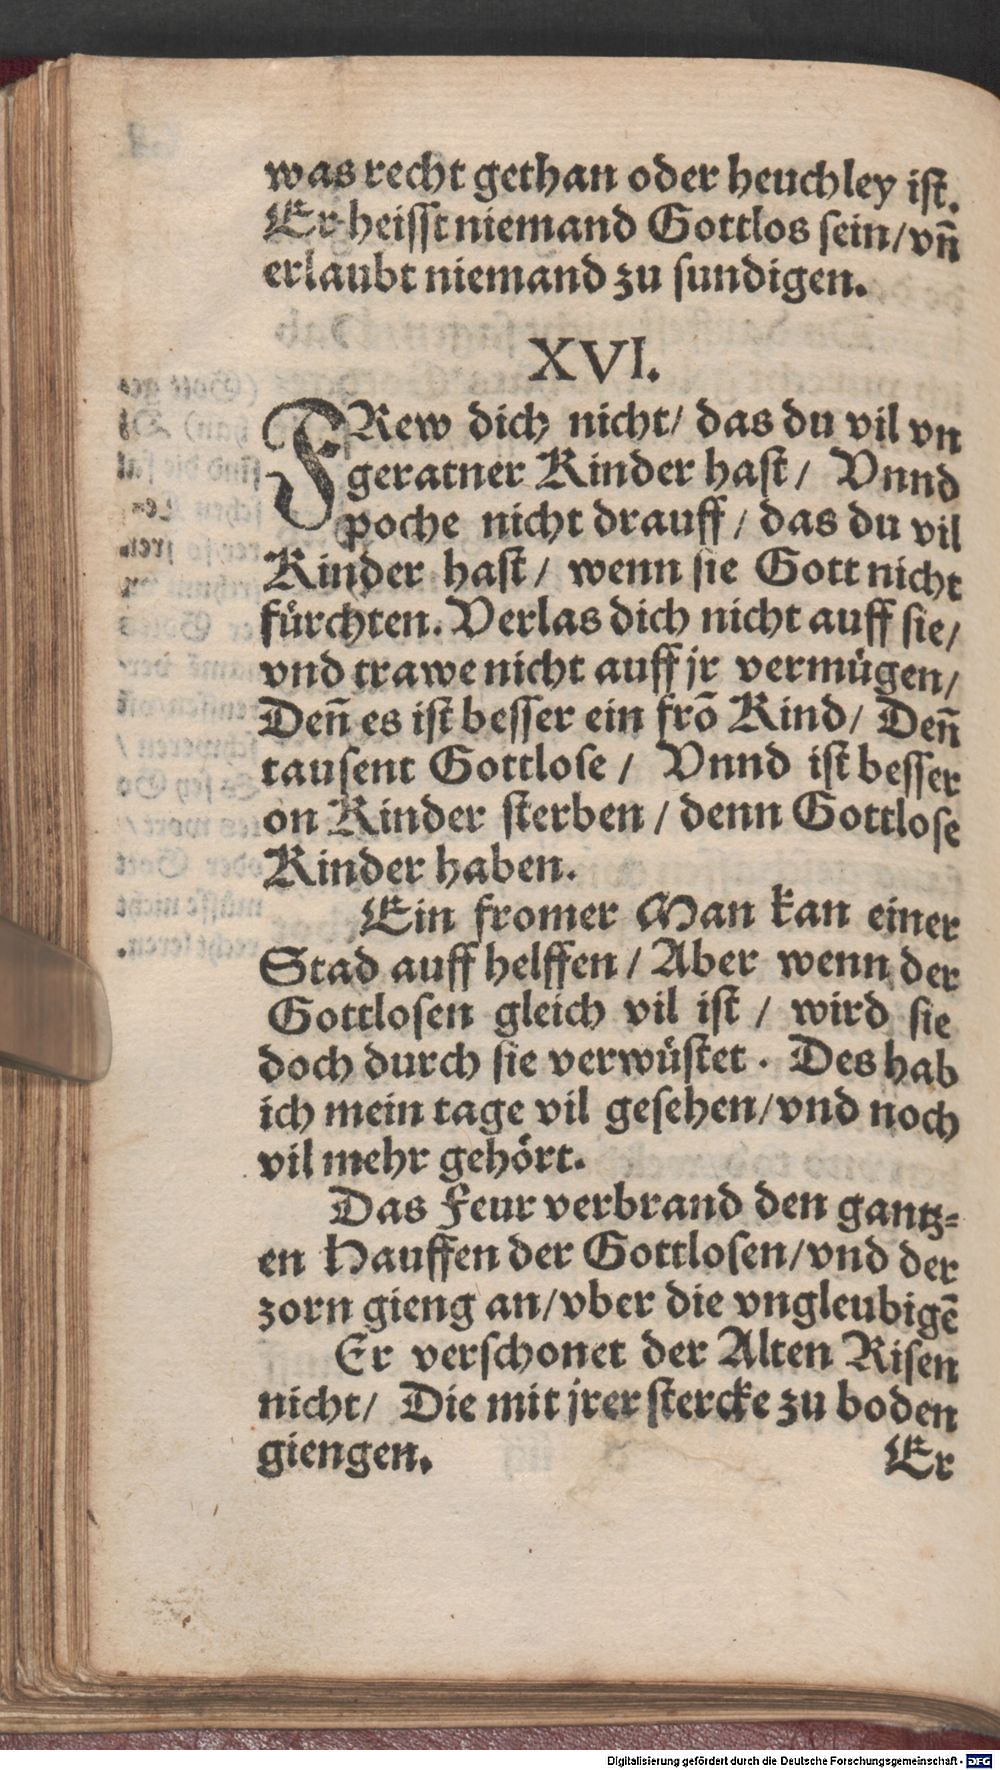 was recht gethan oder heuchley ist.
Er heisst niemand Gottlos sein/vñ
erlaubt niemand zu sundigen.
XVI.
FRew dich nicht/ das du vil vn
geratner Kinder hast/ Vnnd
poche nicht drauff/ das du vil
Kinder hast/ wenn sie Gott nicht
fürchten. Verlas dich nicht auff sie/
vnd trawe nicht auff jr vermügen/
Deñ es ist besser ein frõ Kind/ Deñ
tausent Gottlose/ Vnnd ist besser
on Kinder sterben/ denn Gottlose
Kinder haben.
Ein fromer Man kan einer
Stad auff helffen/ Aber wenn der
Gottlosen gleich vil ist/ wird sie
doch durch sie verwüstet. Des hab
ich mein tage vil gesehen/vnd noch
vil mehr gehört.
Das Feur verbrand den gantz=
en Hauffen der Gottlosen/vnd der
zorn gieng an/vber die vngleubigẽ
Er verschonet der Alten Risen
nicht/ Die mit jrer stercke zu boden
giengen.
Er
Digitalisierung gefördert durch die Deutsche Forschungsgemeinschaft - DFG